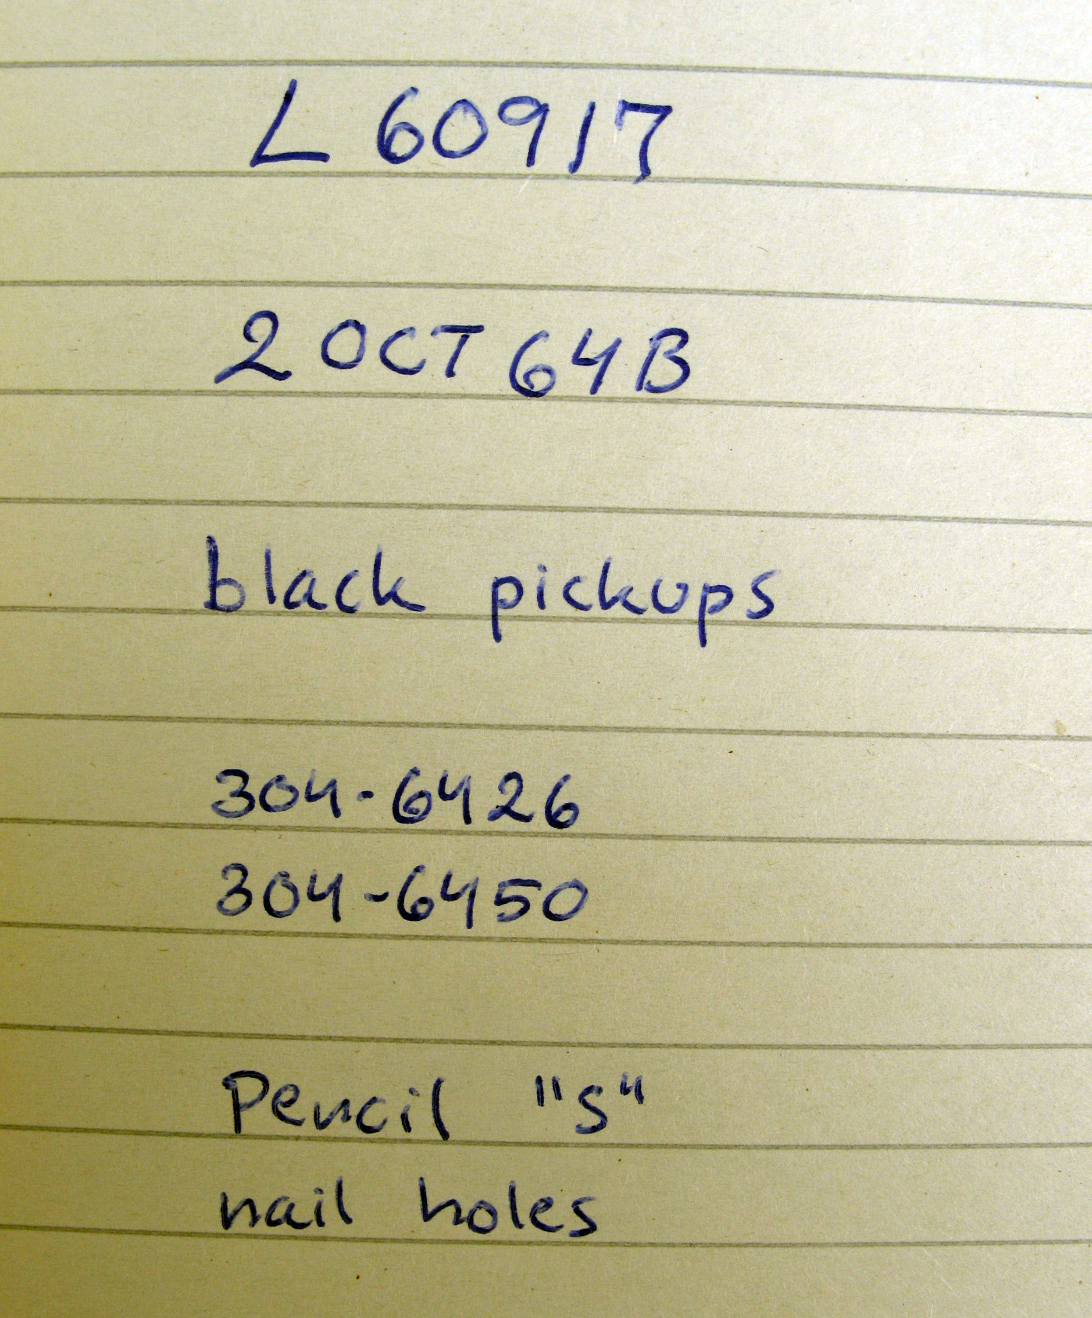 L 60917
2 OCT 64 B
black pickups
304-6426
304-6450
Pencil "S"
nail holes